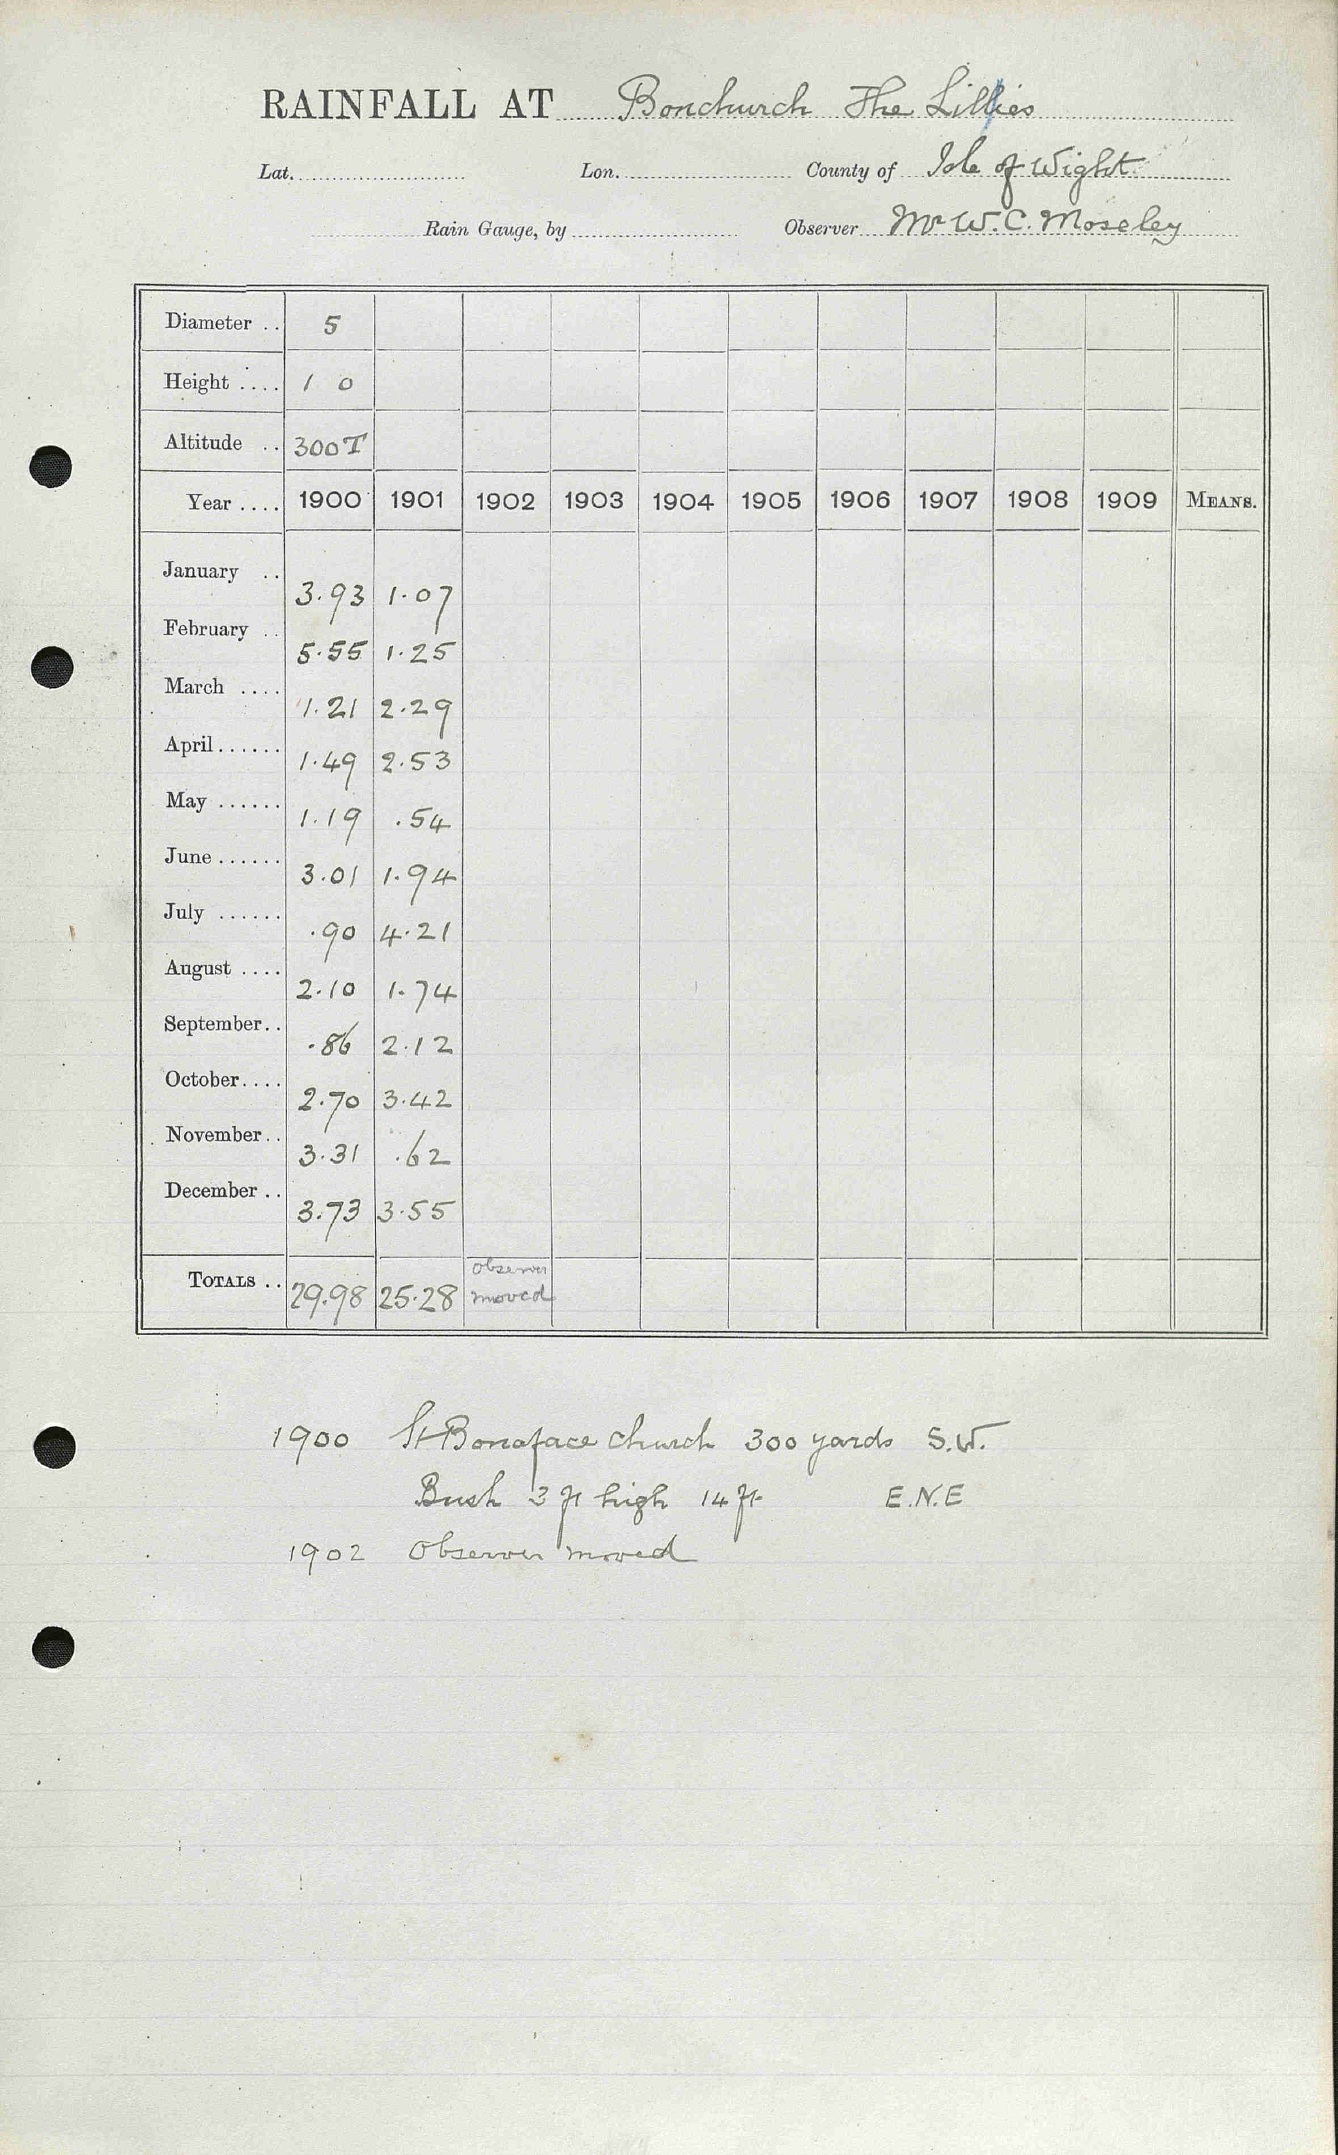 RAINFALL AT Bonchurch The Lillies
Lat. Lon. County of Isle of Wight
Rain Gauge, by Observer Mr W. C. Moseley
Diameter .. 5
Height .... 1 0
Altitude .. 300T
Year .... 1900 1901 1902 1903 1904 1905 1906 1907 1908 1909 MEANS.
January .. 3.93 1.07
February .. 5.55 1.25
March .... 1.21 2.29
April...... 1.49 2.53
May ...... 1.19 .54
June ...... 3.01 1.94
July ...... .90 4.21
August .... 2.10 1.74
September.. .86 2.12
October.... 2.70 3.42
November.. 3.31 .62
December .. 3.73 3.55
TOTALS .. 29.98 25.28 Observer moved
1900 St Boniface church 300 yards S.W.
Bush 3 ft high 14 ft E.N.E
1902 Observer moved